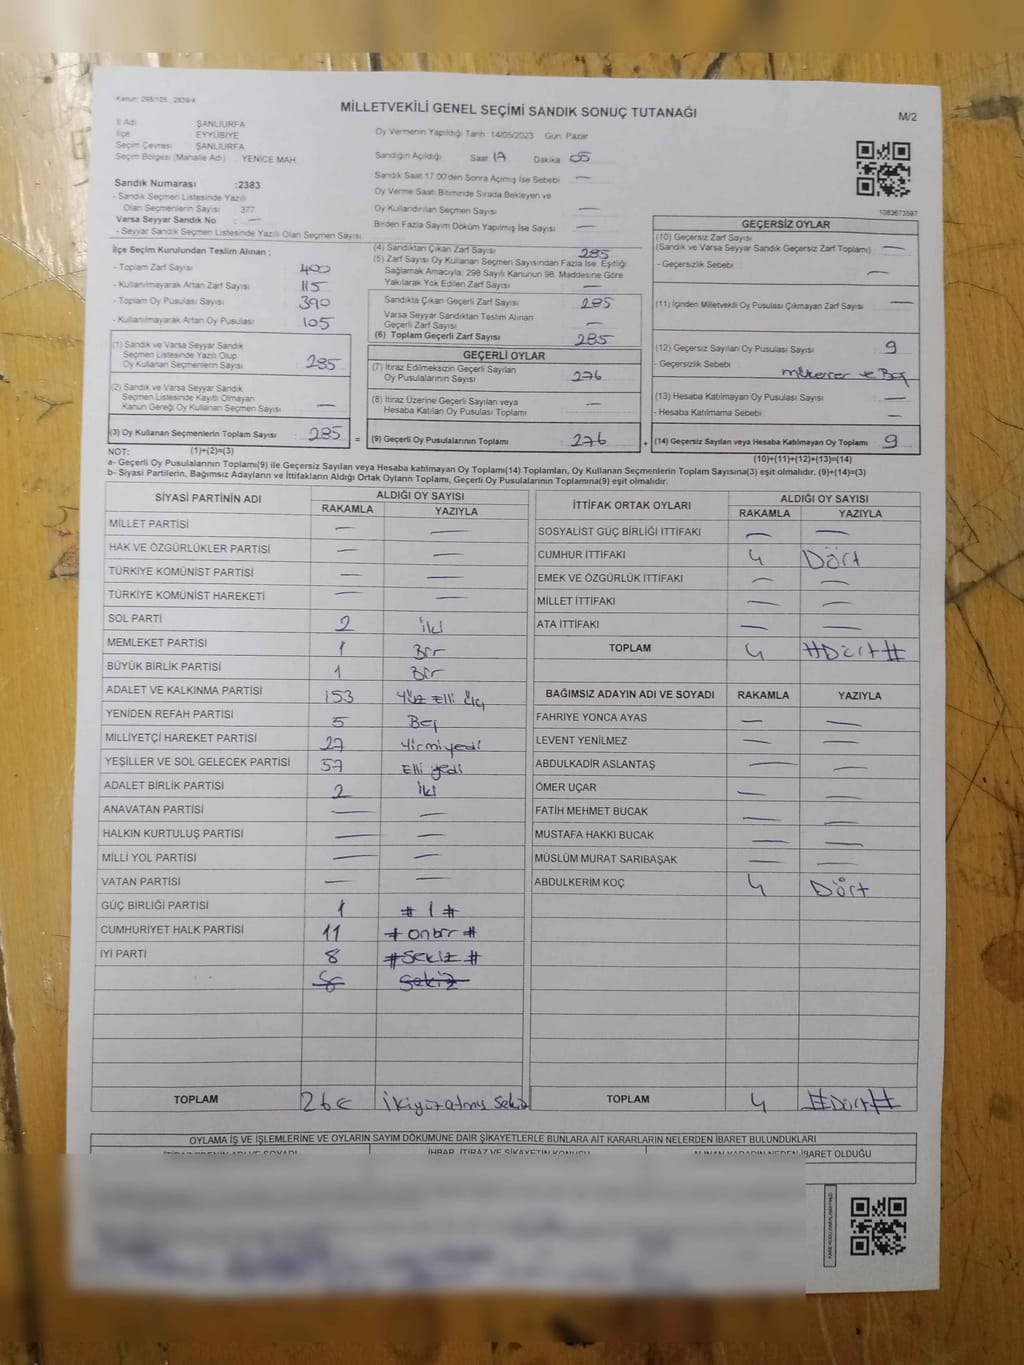 Kanun: 298/105 , 2839/4
MİLLETVEKİLİ GENEL SEÇİMİ SANDIK SONUÇ TUTANAĞI
M/2
İl Adı : ŞANLIURFA
İlçe : EYYÜBİYE
Seçim Çevresi : ŞANLIURFA
Seçim Bölgesi (Mahalle Adı) YENİCE MAH.
Sandık Numarası :2383
- Sandık Seçmen Listesinde Yazılı
Olan Seçmenlerin Sayısı 377
Varsa Seyyar Sandık No : —
- Seyyar Sandık Seçmen Listesinde Yazılı Olan Seçmen Sayısı
Oy Vermenin Yapıldığı Tarih: 14/05/2023 Gün: Pazar
Sandığın Açıldığı Saat 17 Dakika 05
Sandık Saat 17.00'den Sonra Açılmış İse Sebebi —
Oy Verme Saati Bitiminde Sırada Bekleyen ve
Oy Kullandırılan Seçmen Sayısı —
Birden Fazla Sayım Döküm Yapılmış İse Sayısı —
1083673597
İlçe Seçim Kurulundan Teslim Alınan ;
- Toplam Zarf Sayısı 400
- Kullanılmayarak Artan Zarf Sayısı 115
- Toplam Oy Pusulası Sayısı 390
- Kullanılmayarak Artan Oy Pusulası 105
(1) Sandık ve Varsa Seyyar Sandık
Seçmen Listesinde Yazılı Olup
Oy Kullanan Seçmenlerin Sayısı 285
(2) Sandık ve Varsa Seyyar Sandık
Seçmen Listesinde Kayıtlı Olmayan
Kanun Gereği Oy Kullanan Seçmen Sayısı —
(3) Oy Kullanan Seçmenlerin Toplam Sayısı 285 =
(4) Sandıktan Çıkan Zarf Sayısı 285
(5) Zarf Sayısı Oy Kullanan Seçmen Sayısından Fazla İse, Eşitliği
Sağlamak Amacıyla; 298 Sayılı Kanunun 98. Maddesine Göre
Yakılarak Yok Edilen Zarf Sayısı —
Sandıkta Çıkan Geçerli Zarf Sayısı 285
Varsa Seyyar Sandıktan Teslim Alınan
Geçerli Zarf Sayısı —
(6) Toplam Geçerli Zarf Sayısı 285
GEÇERLİ OYLAR
(7) İtiraz Edilmeksizin Geçerli Sayılan
Oy Pusulalarının Sayısı 276
(8) İtiraz Üzerine Geçerli Sayılan veya
Hesaba Katılan Oy Pusulaları Toplamı —
(9) Geçerli Oy Pusulalarının Toplamı 276 +
GEÇERSİZ OYLAR
(10) Geçersiz Zarf Sayısı
(Sandık ve Varsa Seyyar Sandık Geçersiz Zarf Toplamı) —
- Geçersizlik Sebebi —
(11) İçinden Milletvekili Oy Pusulası Çıkmayan Zarf Sayısı —
(12) Geçersiz Sayılan Oy Pusulası Sayısı 9
- Geçersizlik Sebebi: mükerrer ve Boş
(13) Hesaba Katılmayan Oy Pusulası Sayısı —
- Hesaba Katılmama Sebebi —
(14) Geçersiz Sayılan veya Hesaba Katılmayan Oy Toplamı 9
NOT: (1)+(2)=(3)
(10)+(11)+(12)+(13)=(14)
a- Geçerli Oy Pusulalarının Toplamı(9) ile Geçersiz Sayılan veya Hesaba katılmayan Oy Toplamı(14) Toplamları, Oy Kullanan Seçmenlerin Toplam Sayısına(3) eşit olmalıdır. (9)+(14)=(3)
b- Siyasi Partilerin, Bağımsız Adayların ve İttifakların Aldığı Ortak Oyların Toplamı, Geçerli Oy Pusulalarının Toplamına(9) eşit olmalıdır.
SİYASİ PARTİNİN ADI ALDIĞI OY SAYISI
RAKAMLA YAZIYLA
MİLLET PARTİSİ — —
HAK VE ÖZGÜRLÜKLER PARTİSİ — —
TÜRKİYE KOMÜNİST PARTİSİ — —
TÜRKİYE KOMÜNİST HAREKETİ — —
SOL PARTİ 2 iki
MEMLEKET PARTİSİ 1 Bir
BÜYÜK BİRLİK PARTİSİ 1 Bir
ADALET VE KALKINMA PARTİSİ 153 Yüz Elli üç
YENİDEN REFAH PARTİSİ 5 Beş
MİLLİYETÇİ HAREKET PARTİSİ 27 Yirmiyedi
YEŞİLLER VE SOL GELECEK PARTİSİ 57 Elli yedi
ADALET BİRLİK PARTİSİ 2 iki
ANAVATAN PARTİSİ — —
HALKIN KURTULUŞ PARTİSİ — —
MİLLİ YOL PARTİSİ — —
VATAN PARTİSİ — —
GÜÇ BİRLİĞİ PARTİSİ 1 # 1 #
CUMHURİYET HALK PARTİSİ 11 # onbir #
İYİ PARTİ 8 # Sekiz #
Sekiz
TOPLAM 268 İkiyüzatmış Sekiz
İTTİFAK ORTAK OYLARI ALDIĞI OY SAYISI
RAKAMLA YAZIYLA
SOSYALİST GÜÇ BİRLİĞİ İTTİFAKI — —
CUMHUR İTTİFAKI 4 Dört
EMEK VE ÖZGÜRLÜK İTTİFAKI — —
MİLLET İTTİFAKI — —
ATA İTTİFAKI — —
TOPLAM 4 #Dört#
BAĞIMSIZ ADAYIN ADI VE SOYADI RAKAMLA YAZIYLA
FAHRİYE YONCA AYAS — —
LEVENT YENİLMEZ — —
ABDULKADİR ASLANTAŞ — —
ÖMER UÇAR — —
FATİH MEHMET BUCAK — —
MUSTAFA HAKKI BUCAK — —
MÜSLÜM MURAT SARIBAŞAK — —
ABDULKERİM KOÇ 4 Dört
TOPLAM 4 #Dört#
OYLAMA İŞ VE İŞLEMLERİNE VE OYLARIN SAYIM DÖKÜMÜNE DAİR ŞİKAYETLERLE BUNLARA AİT KARARLARIN NELERDEN İBARET BULUNDUKLARI
İHBAR, İTİRAZ VE ŞİKAYETİN KONUSU
ALINAN KARARIN NEDEN İBARET OLDUĞU